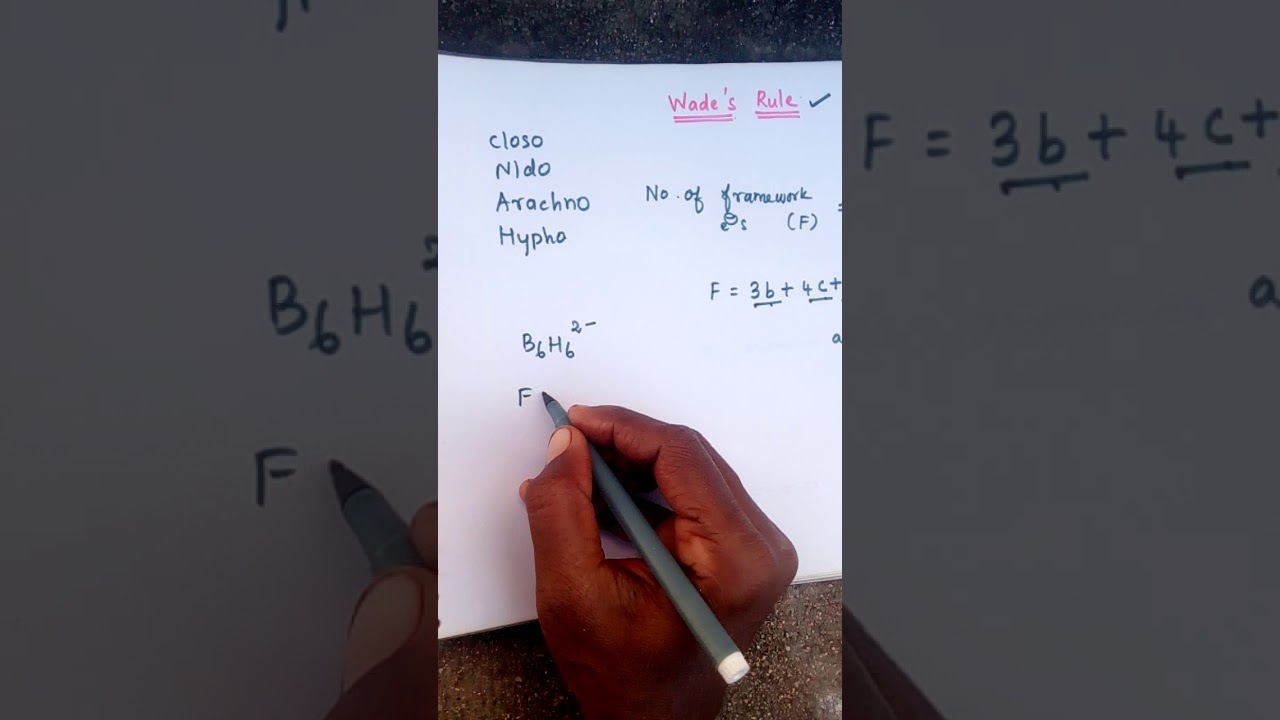 Wade's Rule ✓
Closo
Nido
Arachno
Hypho
No. of framework
e⊖s (F) =
F = 3b + 4c +
a
B₆H₆²⁻
F